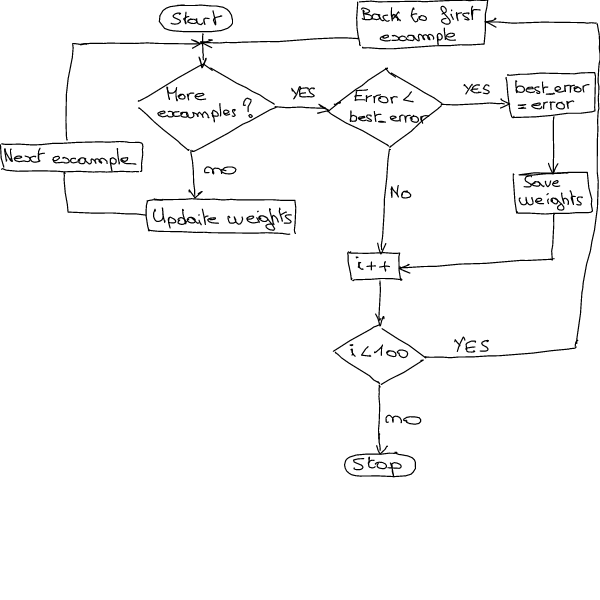 Start
Back to first
example
More
examples?
YES
Error <
best_error
YES
best_error
= error
no
Next example
Update weights
No
Save
weights
i++
i<100
YES
no
Stop